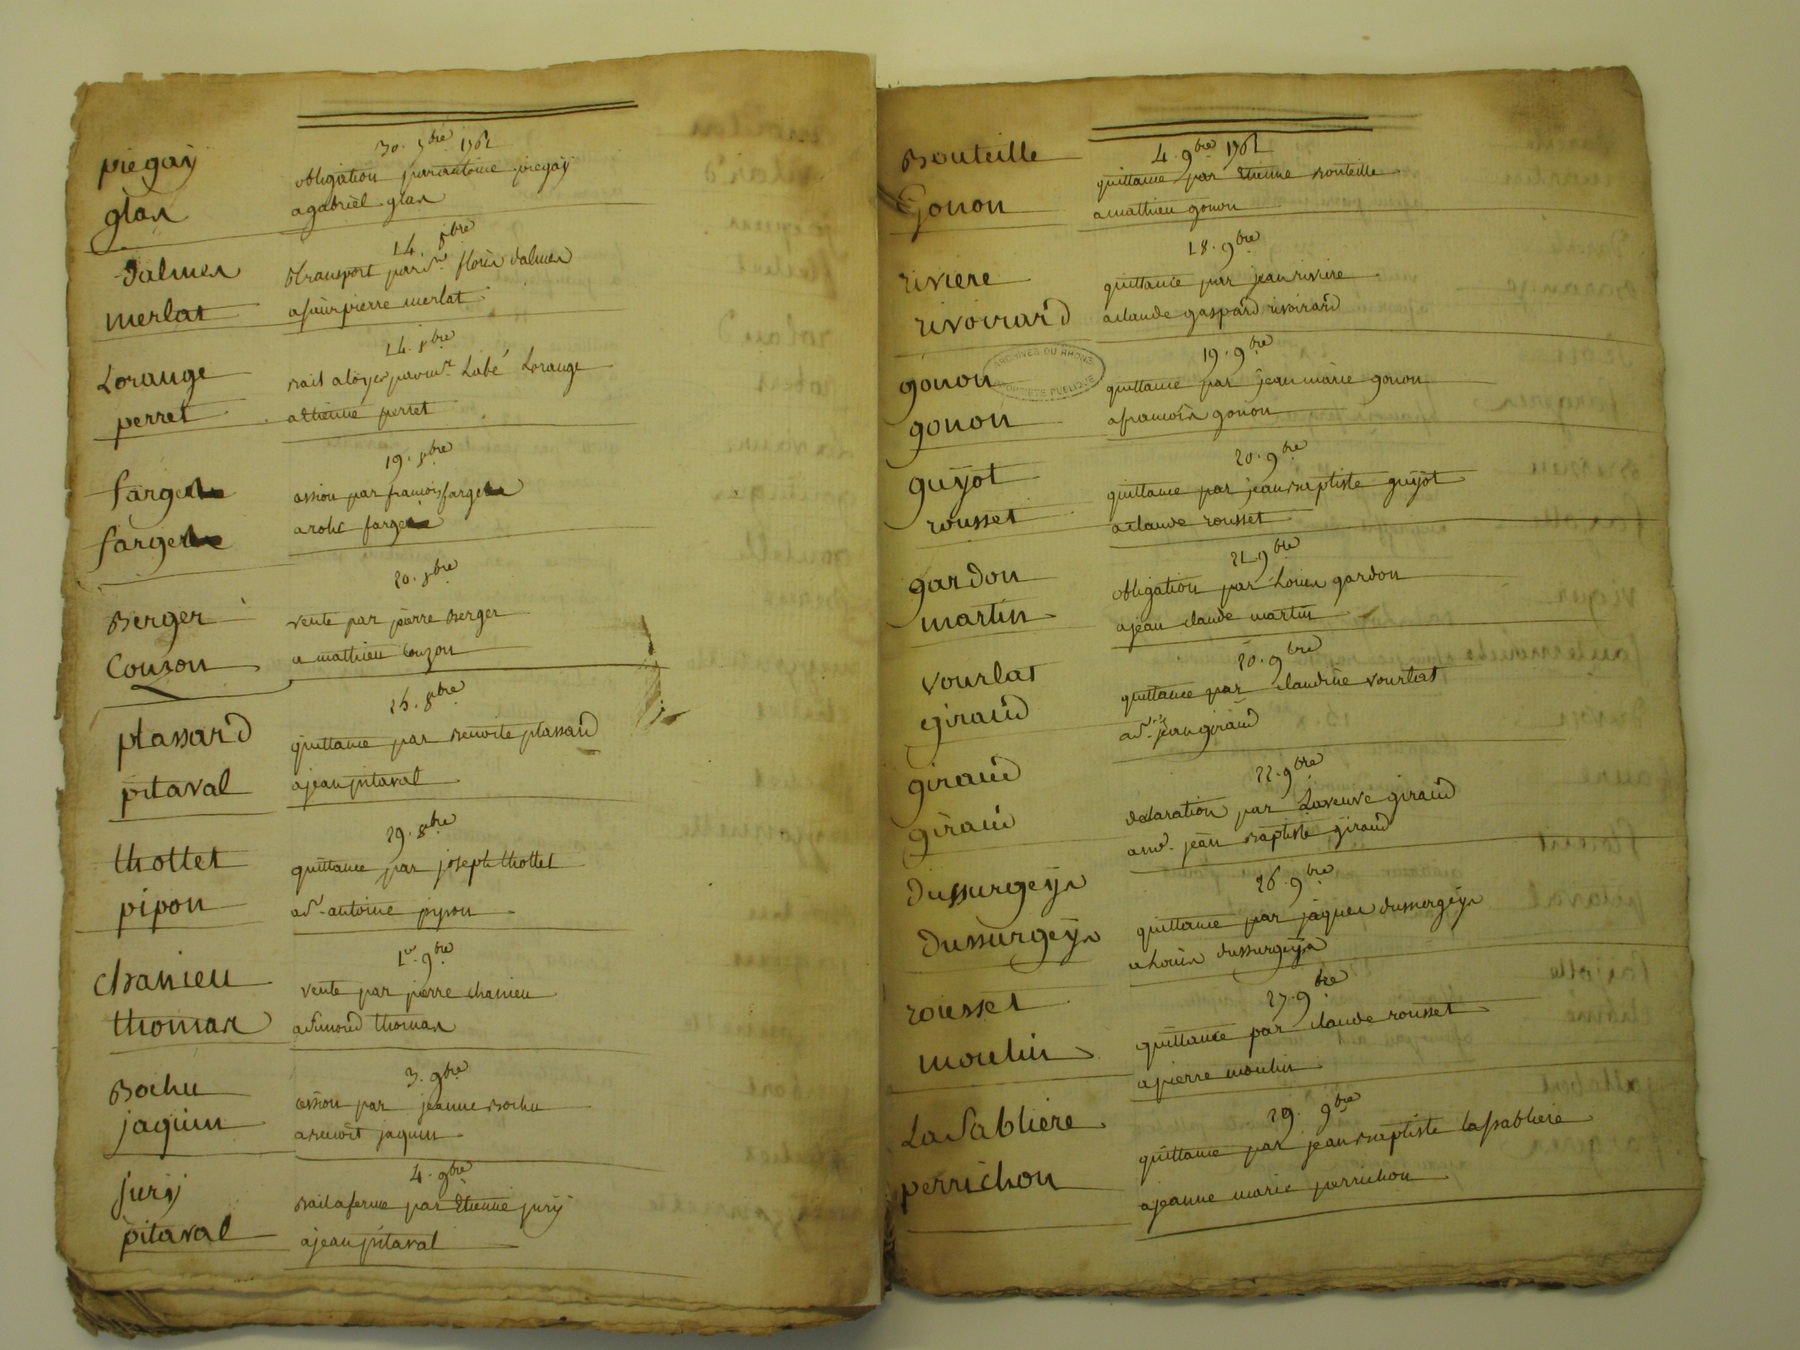 piegay
glas
30. 7bre 1762
obligation par antoine piegaÿ
a gabriel glas
dalmes
merlat
14. 8bre
transport par Sr floris dalmes
a sieur pierre merlat
Lorange
perret
14. 8bre
Bail a loÿer par mr Labé Lorange
a Etienne perret
farge
farge
19. 8bre
cession par francois farge
a rohc farge
Berger
Couzon
20. 8bre
vente par pierre Berger
a mathieu couzon
plassard
pitaval
26. 8bre
quittance par Benoite plassard
a jean pitaval
thollet
pipon
29. 8bre
quittance par joseph thollet
a Sr antoine pipon
chanieu
thomas
1er 9bre
vente par pierre chanieu
a Simond thomas
Bochu
jaquin
3. 9bre
cession par jeanne Bochu
a Benoit jaquin
jurÿ
pitaval
4. 9bre
Bail a ferme par Etienne jurÿ
a jean pitaval
Bouteille
Gonon
4. 9bre 1762
quittance par Etienne Bouteille
a mathieu gonon
riviere
rivoirard
18. 9bre
quittance par jean riviere
a claude gaspard rivoirard
gonon
gonon
ARCHIVES DU RHONE
PROPRIÉTÉ PUBLIQUE
19. 9bre
quittance par jean marie gonon
a francois gonon
guÿot
rousset
20. 9bre
quittance par jean Baptiste guÿot
a claude rousset
gardon
martin
21. 9bre
obligation par Louis gardon
a jean claude martin
vourlat
giraud
20. 9bre
quittance par claudine vourlat
a Sr jean giraud
giraud
giraud
22. 9bre
declaration par La veuve giraud
a Sr jean Baptiste giraud
dussurgeÿs
dussurgeÿs
26. 9bre
quittance par jaques dussurgeÿs
a Louis dussurgeÿs
rousset
moulin
27. 9bre
quittance par claude rousset
a pierre moulin
La Sabliere
perrichon
29. 9bre
quittance par jean Baptiste lassabliere
a jeanne marie perrichon